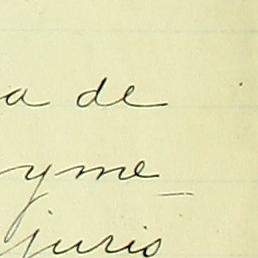 a de
yme-
juris